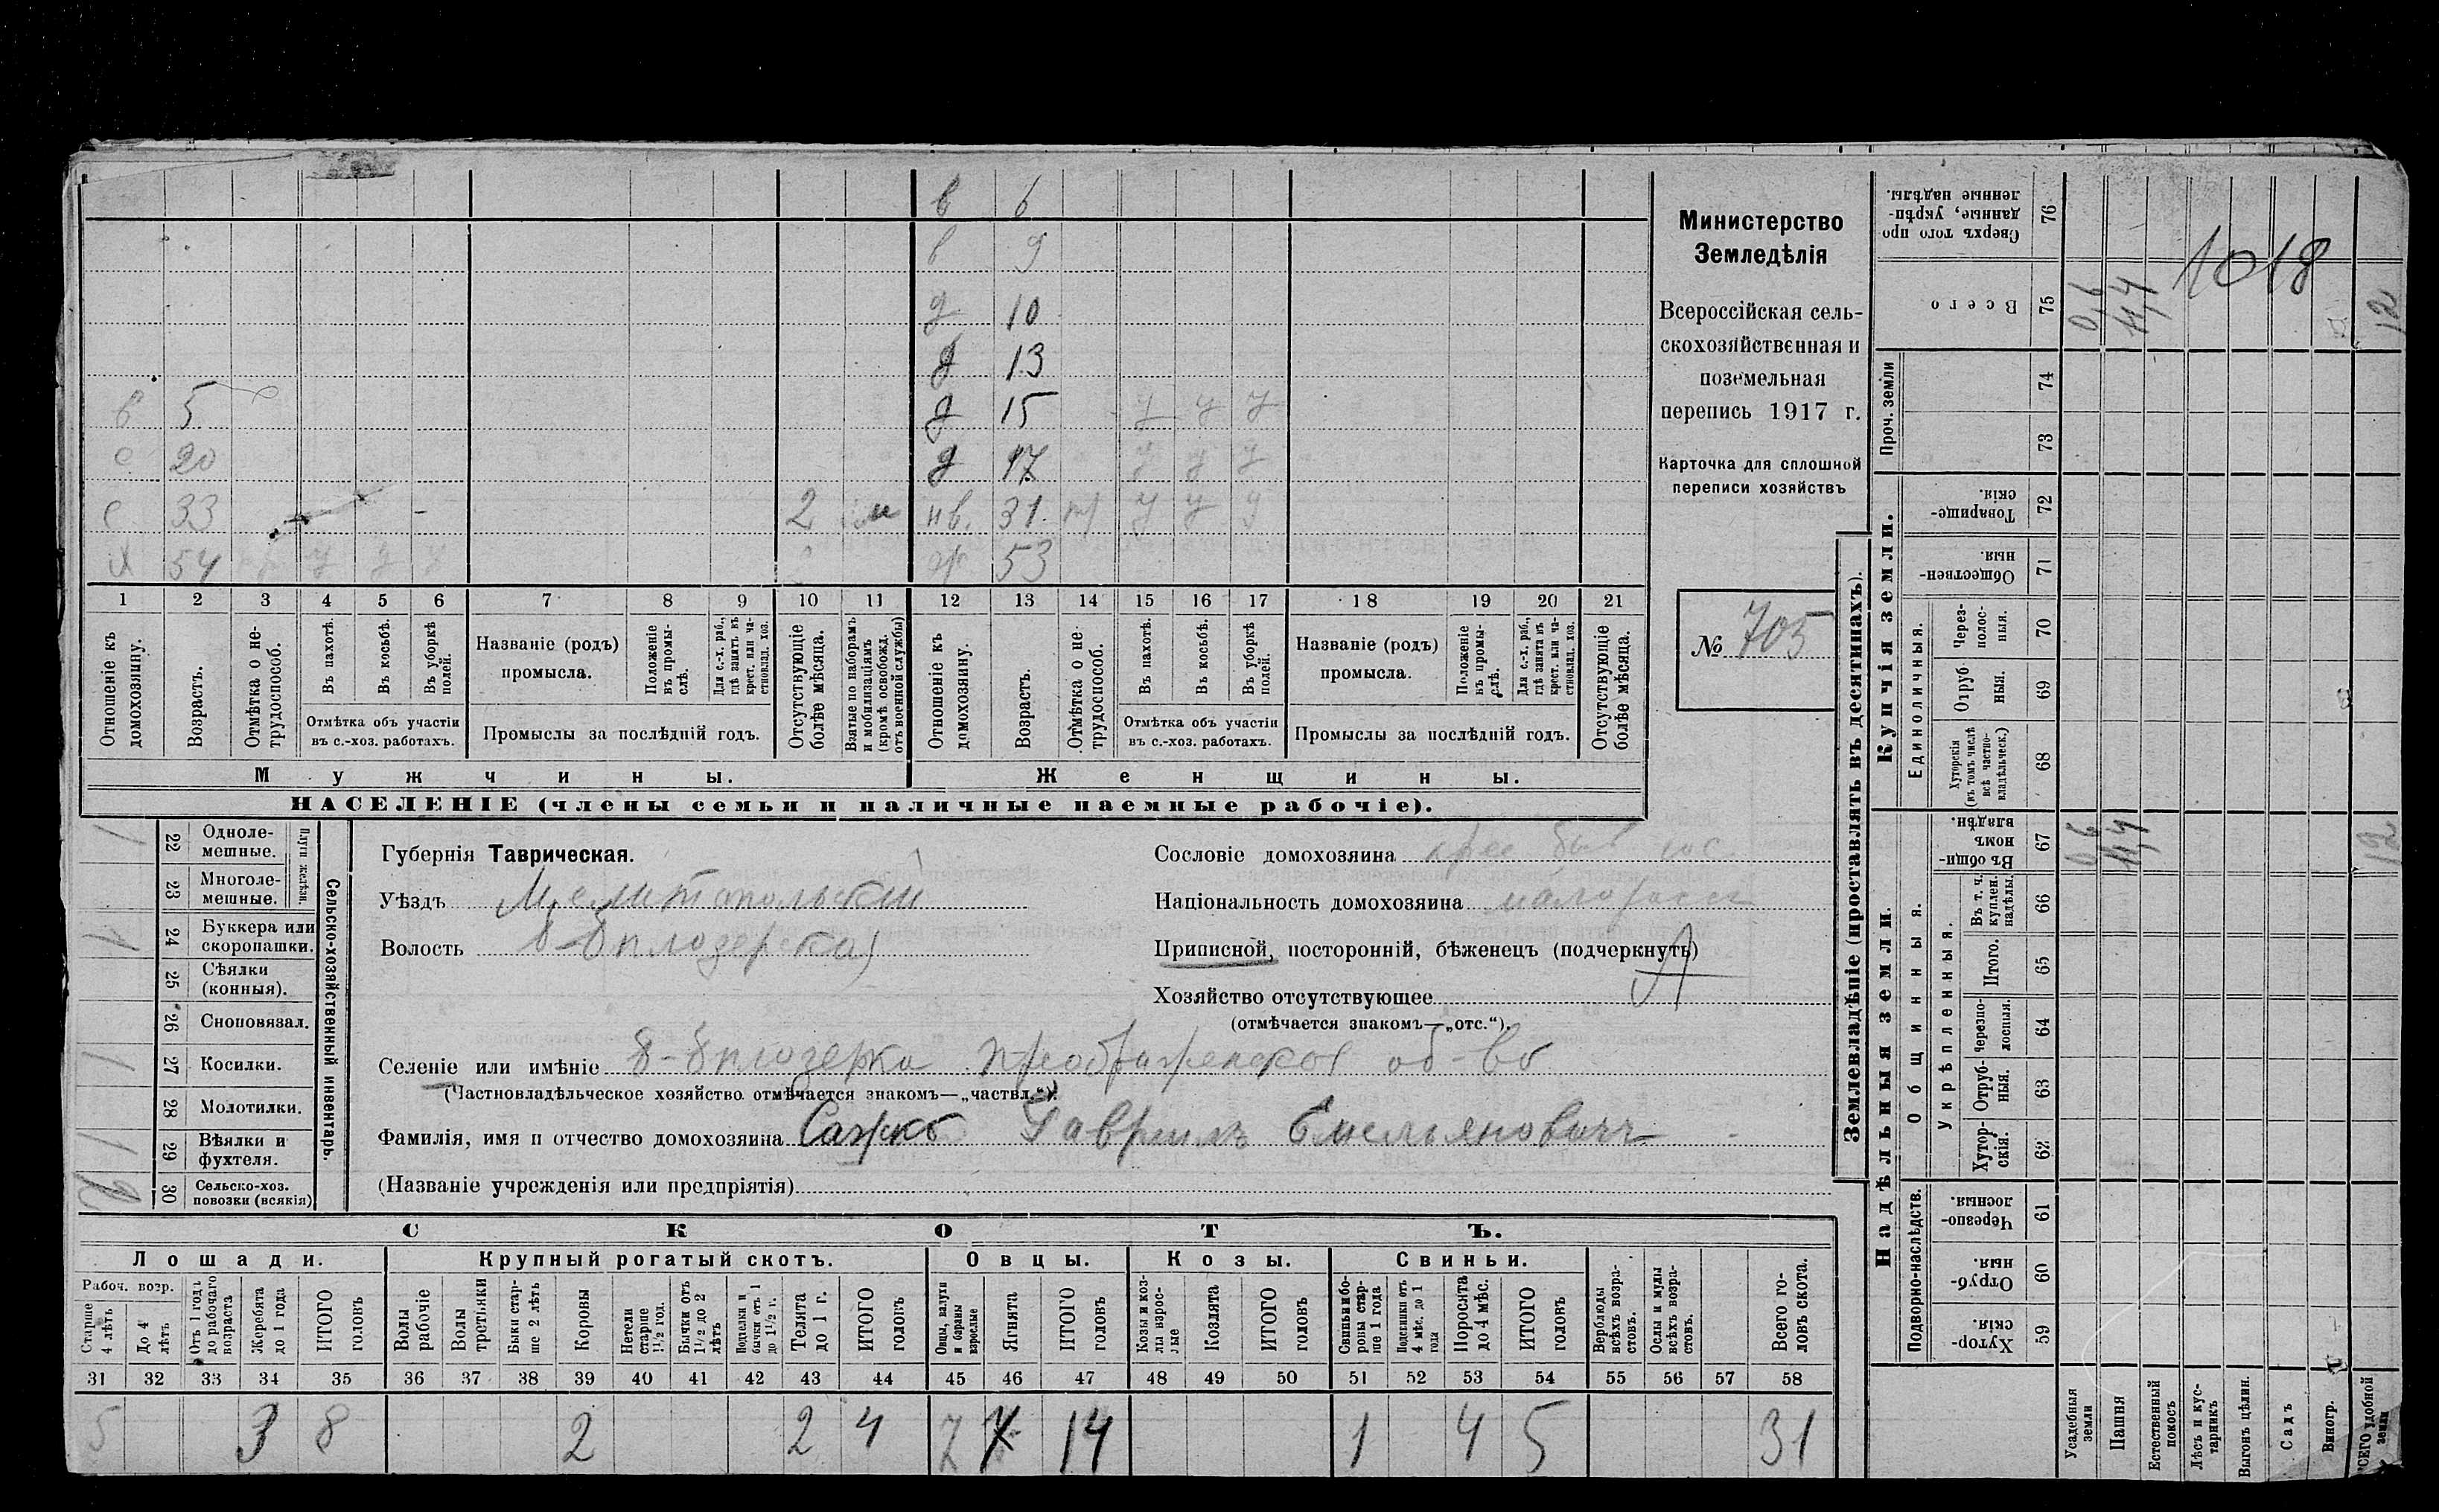 в 6
в 9
д 10
д 13
в 5 д 15 у у у
с 20 д 17 у у у
с 33 2 м нв. 31 у у у
х 54 у у у ж 53
1 2 3 4 5 6 7 8 9 10 11 12 13 14 15 16 17 18 19 20 21
Отношеніе къ домохозяину.
Возрастъ.
Отмѣтка о нетрудоспособ.
Въ пахотѣ.
Въ косьбѣ.
Въ уборкѣ полей.
Отмѣтка объ участіи въ с.-хоз. работахъ.
Названіе (родъ) промысла.
Положеніе въ промыслѣ.
Для с.-х. раб., гдѣ занятъ въ крест. или частновлад. хоз.
Промыслы за послѣдній годъ.
Отсутствующіе болѣе мѣсяца.
Взятые по наборамъ и мобилизаціямъ (кромѣ освобожд. отъ военной службы)
Отношеніе къ домохозяину.
Возрастъ.
Отмѣтка о не трудоспособ.
Въ пахотѣ.
Въ косьбѣ.
Въ уборкѣ полей.
Отмѣтка объ участіи въ с.-хоз. работахъ.
Названіе (родъ) промысла.
Положеніе въ промыслѣ.
Для с.-х. раб., гдѣ занята въ крест. или частновлад. хоз.
Промыслы за послѣдній годъ.
Отсутствующіе болѣе мѣсяца.
Мужчины. Женщины.
НАСЕЛЕНІЕ (члены семьи и наличные наемные рабочіе).
Министерство
Земледѣлія
Всероссійская сель-
скохозяйственная и
поземельная
перепись 1917 г.
Карточка для сплошной
переписи хозяйствъ
№ 705
Сельско-хозяйственный инвентарь.
Плуги желѣзн.
1 22 Одноле-мешные.
23 Многоле-мешные.
1 24 Буккера или скоропашки.
25 Сѣялки (конныя).
26 Сноповязал.
1 27 Косилки.
28 Молотилки.
1 29 Вѣялки и фухтеля.
30 Сельско-хоз. повозки (всякія)
Губернія Таврическая.
Уѣздъ Мелитопольскій
Волость
Сословіе домохозяина
Національность домохозяина малоросс
Приписной, посторонній, бѣженецъ (подчеркнуть)
Хозяйство отсутствующее
(отмѣчается знакомъ—„отс.“).
Селеніе или имѣніе
(Частновладѣльческое хозяйство отмѣчается знакомъ—„частвл.“).
Фамилія, имя и отчество домохозяина Сажко Гавриилъ Емельяновичъ
(Названіе учрежденія или предпріятія)
СКОТЪ.
Лошади. Крупный рогатый скотъ. Овцы. Козы. Свиньи.
Рабоч. возр.
Старше 4 лѣтъ
До 4 лѣтъ
Отъ 1 года до рабочаго возраста
Жеребята до 1 года
ИТОГО головъ
Волы рабочіе
Волы третьяки
Быки старше 2 лѣтъ
Коровы
Нетели старше 1½ год.
Бычки отъ 1½ до 2 лѣтъ
Подтелки и бычки отъ 1 до 1½ г.
Телята до 1 г.
ИТОГО головъ
Овцы, валухи и бараны взрослые
Ягнята
ИТОГО головъ
Козы и козлы взрослые
Козлята
ИТОГО головъ
Свиньи и боровы старше 1 года
Подсвинки отъ 4 мѣс. до 1 года
Поросята до 4 мѣс.
ИТОГО головъ
Верблюды всѣхъ возрастовъ.
Ослы и мулы всѣхъ возрастовъ.
Всего головъ скота.
31 32 33 34 35 36 37 38 39 40 41 42 43 44 45 46 47 48 49 50 51 52 53 54 55 56 57 58
5 3 8 2 2 4 7 7 14 1 4 5 31
Землевладѣніе (проставлять въ десятинахъ).
Проч. земли
Купчія земли.
Единоличныя.
Надѣльныя земли.
Общинныя.
Укрѣпленныя.
Подворно-наслѣдств.
Сверхъ того проданные, укрѣпленные надѣлы. 76
1018
Всего 75 0,6 11,4 12
74
73
Товарищескія. 72
Общественныя. 71
Черезполосныя. 70
Отрубныя. 69
Хуторскія (въ томъ числѣ всѣ частновладѣльческ.) 68
Въ общиномъ владѣн. 67 0,6 11,4 12
Въ т. ч. куплен. надѣлы. 66
Итого. 65
Черезполосныя. 64
Отрубныя. 63
Хуторскія. 62
Черезполосныя. 61
Отрубныя. 60
Хуторскія. 59
Усадебныя земли
Пашня
Естественный покосъ
Лѣсъ и кустарникъ
Выгонъ цѣлин.
Садъ
Виногр.
ВСЕГО удобной земли